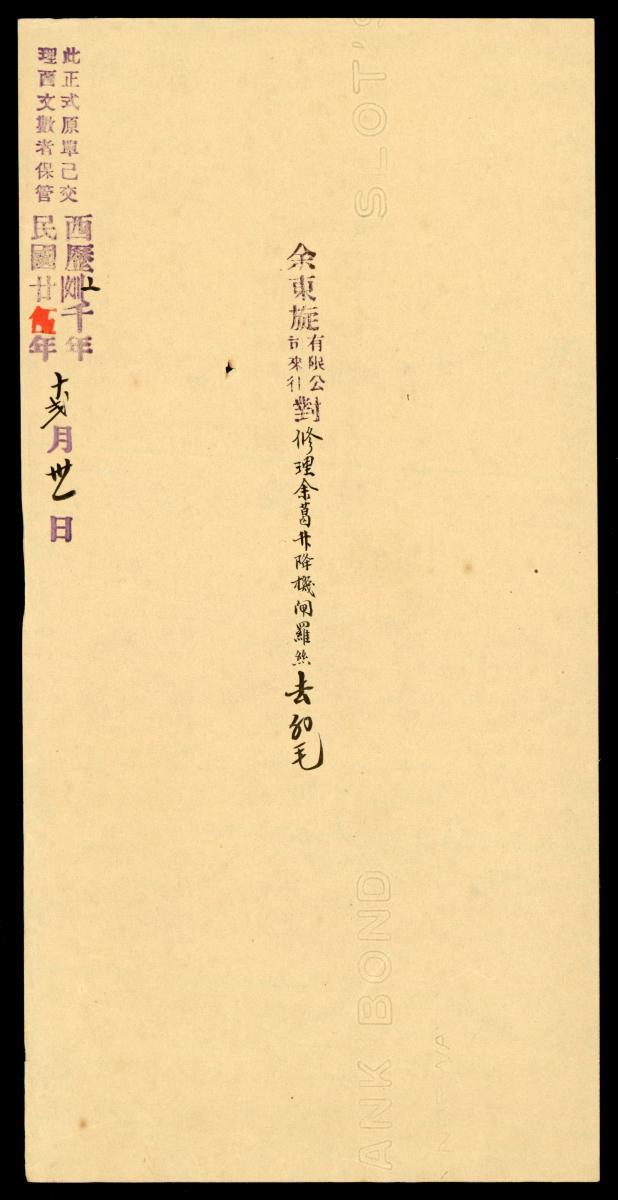 SLOT'S
ANK BOND
余東旋
有限公
司來往
對修理余葛升降機閘羅絲去毛
此正式原單已交
理西文數者保管
西歷千年
民國廿伍年
十弍月卅一日